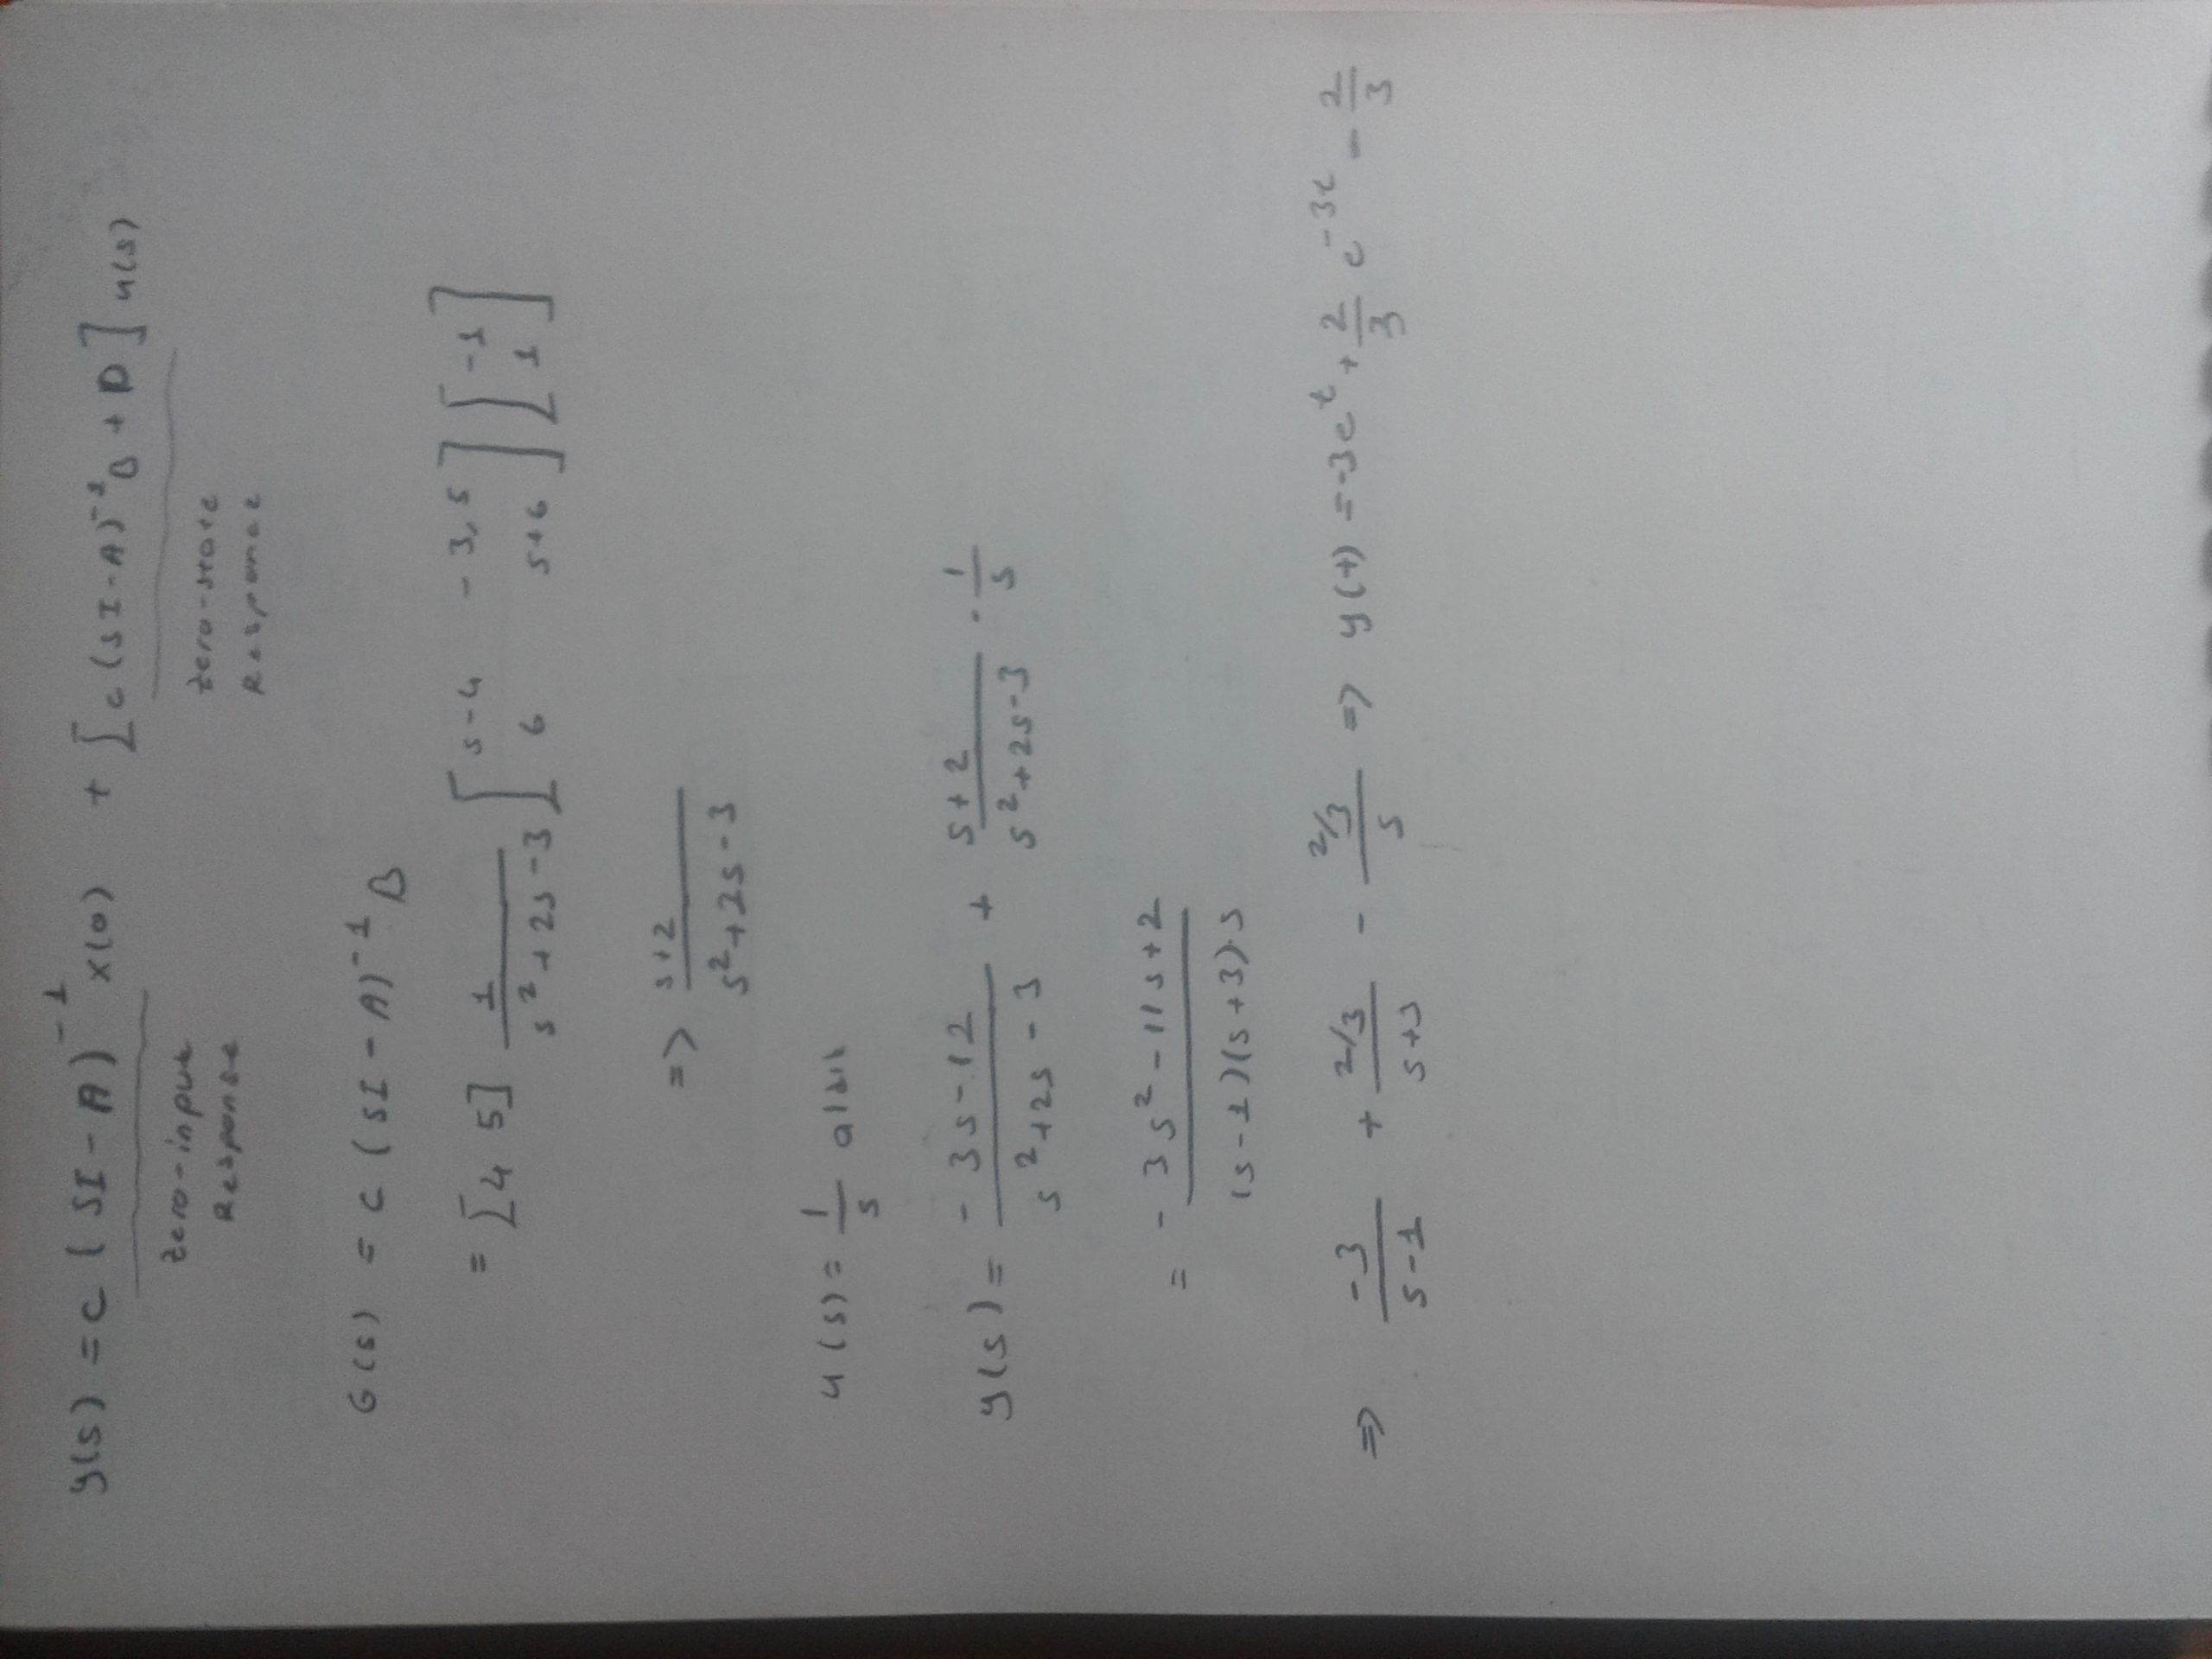 y(s) = C (SI - A)⁻¹ x(0) + [C (SI - A)⁻¹ B + D] u(s)
Zero-input Zero-state
Response Response
G(s) = C (SI - A)⁻¹ B
= [4 5] 1/(s²+2s-3) [s-4 -3,5; 6 s+6] [-1; 1]
=> (s+2)/(s²+2s-3)
u(s) = 1/s aldık
y(s) = (-3s-12)/(s²+2s-3) + (s+2)/(s²+2s-3) · 1/s
= (-3s²-11s+2)/((s-1)(s+3)·s)
=> -3/(s-1) + (2/3)/(s+3) - (2/3)/s => y(t) = -3e^t + 2/3 e^-3t - 2/3